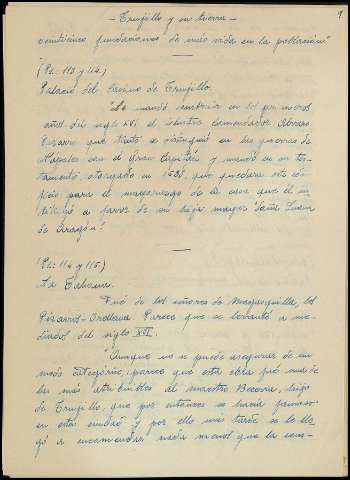 - Trujillo y su tierra - 9
veinticinco fundaciones de más vida en la población"
(Ps.: 113 y 114)
Palacio del Casino de Trujillo.
"Lo mandó construir en los primeros
años del siglo XVI el ilustre comendador Alvaro
Pizarro que tanto se distinguió en las guerras de
Nápoles con el Gran Capitán y mandó en su tes-
tamento, otorgado en 1535, que quedara este edi-
ficio para el mayorazgo de la casa que él ins
tituyó a favor de su hija mayor doña Juana
de Aragón"
(Ps.: 114 y 115)
La Taberna.
Fué de los señores de Magasquilla, los
Pizarro-Orellana. Parece que se levantó a me-
diados del siglo XVI.
"Aunque no se puede asegurar de un
modo categórico, parece que esta obra fué una de
las más atribuibles al maestro Becerra, hijo
de Trujillo, que por entonces se hacía famoso
en esta ciudad y por ello más tarde se le lle
gó a encomendar nada menos que la cons-